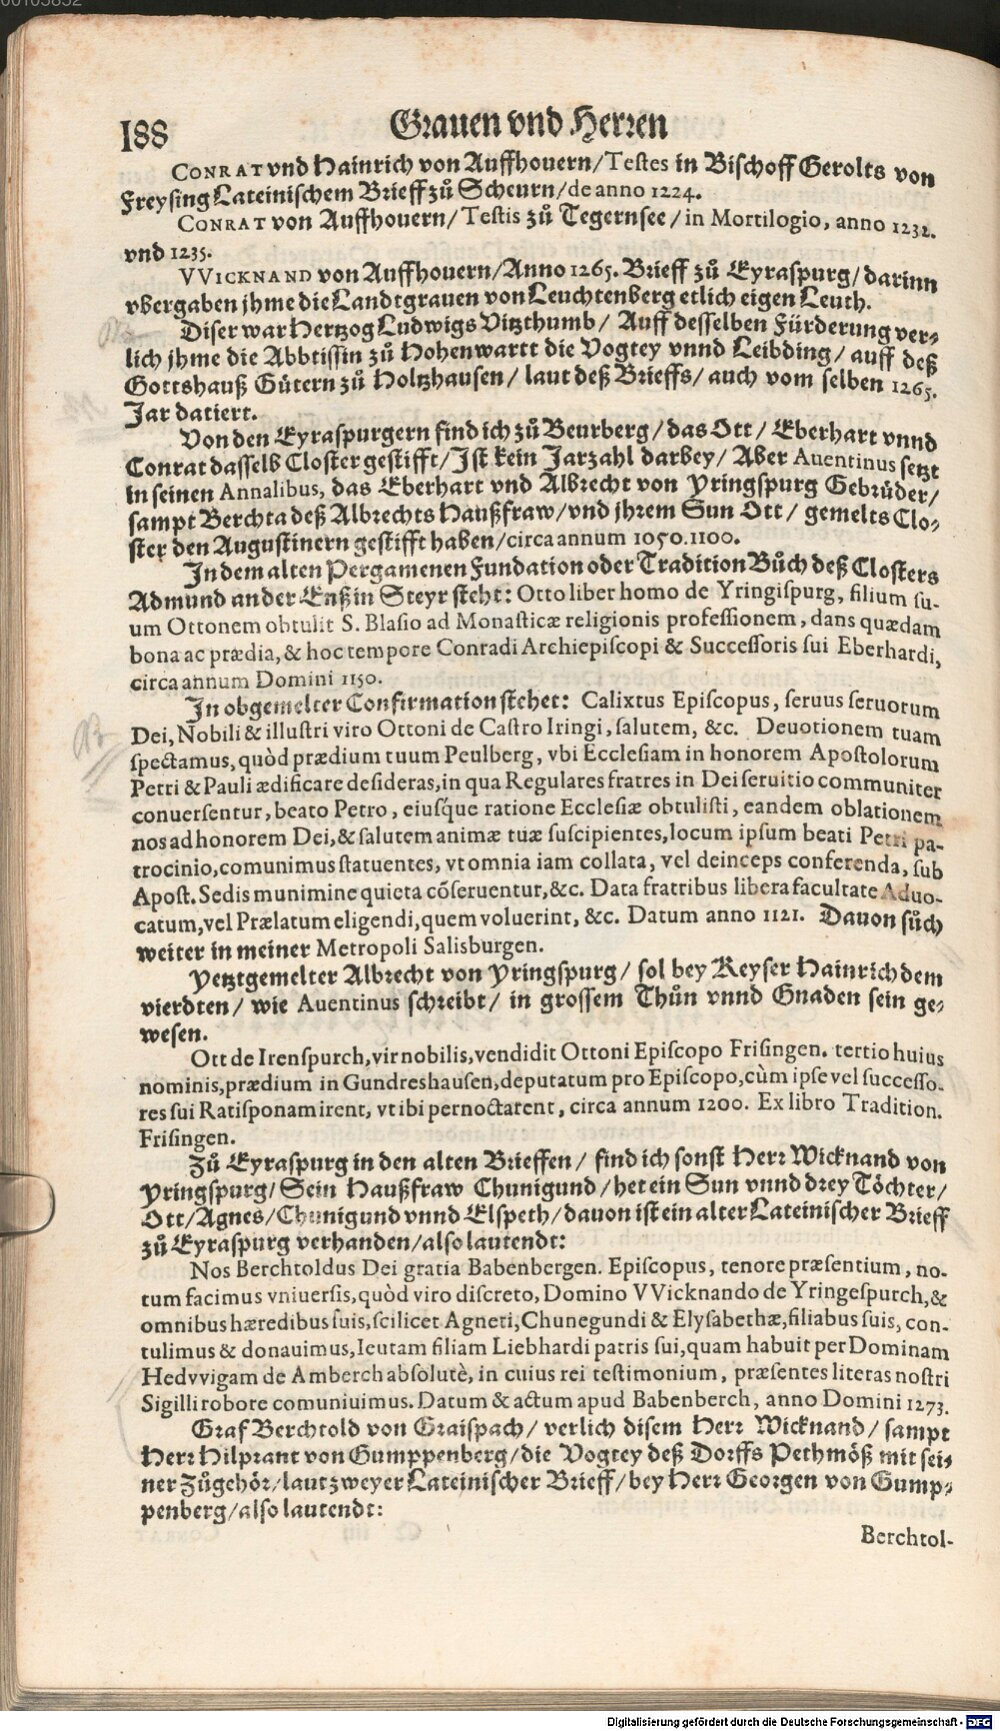 188 Grauen vnd Herren
CONRAT vnd Hainrich von Auffhouern/Testes in Bischoff Gerolts von
Freysing Lateinischem Brieff zů Scheurn/de anno 1224.
CONRAT von Auffhouern/Testis zů Tegernsee/in Mortilogio, anno 1232.
vnd 1235.
VVICKNAND von Auffhouern/Anno 1265. Brieff zů Eyraspurg/darinn
vbergaben jhme die Landtgrauen von Leuchtenberg etlich eigen Leuth.
Diser war Hertzog Ludwigs Vitzthumb/ Auff desselben Fürderung ver-
lich jhme die Abbtissin zů Hohenwartt die Vogtey vnnd Leibding/auff deß
Gottshauß Gütern zů Holtzhausen/laut deß Brieffs/auch vom selben 1265.
Jar datiert.
Von den Eyraspurgern find ich zů Beurberg/das Ott/ Eberhart vnnd
Conrat dasselb Closter gestifft/Ist kein Jarzahl darbey/ Aber Auentinus setzt
in seinen Annalibus, das Eberhart vnd Albrecht von Yringspurg Gebrüder/
sampt Berchta deß Albrechts Haußfraw/vnd jhrem Sun Ott/ gemelts Clo-
ster den Augustinern gestifft haben/circa annum 1050.1100.
In dem alten Pergamenen Fundation oder Tradition Bůch deß Closters
Admund an der Enß in Steyr steht: Otto liber homo de Yringispurg, filium su-
um Ottonem obtulit S. Blasio ad Monasticæ religionis professionem, dans quædam
bona ac prædia, & hoc tempore Conradi Archiepiscopi & Successoris sui Eberhardi,
circa annum Domini 1150.
In obgemelter Confirmation stehet: Calixtus Episcopus, seruus seruorum
Dei, Nobili & illustri viro Ottoni de Castro Iringi, salutem, &c. Deuotionem tuam
spectamus, quòd prædium tuum Peulberg, vbi Ecclesiam in honorem Apostolorum
Petri & Pauli ædificare desideras, in qua Regulares fratres in Dei seruitio communiter
conuersentur, beato Petro, eiusq́ue ratione Ecclesiæ obtulisti, eandem oblationem
nos ad honorem Dei, & salutem animæ tuæ suscipientes, locum ipsum beati Petri pa-
trocinio, comunimus statuentes, vt omnia iam collata, vel deinceps conferenda, sub
Apost. Sedis munimine quieta cõseruentur, &c. Data fratribus libera facultate Aduo-
catum, vel Prælatum eligendi, quem voluerint, &c. Datum anno 1121. Dauon sůch
weiter in meiner Metropoli Salisburgen.
Yetztgemelter Albrecht von Yringspurg/ sol bey Keyser Hainrich dem
vierdten/ wie Auentinus schreibt/ in grossem Thůn vnnd Gnaden sein ge-
wesen.
Ott de Irenspurch, vir nobilis, vendidit Ottoni Episcopo Frisingen. tertio huius
nominis, prædium in Gundreshausen, deputatum pro Episcopo, cùm ipse vel successo-
res sui Ratisponam irent, vt ibi pernoctarent, circa annum 1200. Ex libro Tradition.
Frisingen.
Zů Eyraspurg in den alten Brieffen/ find ich sonst Herr Wicknand von
Yringspurg/ Sein Haußfraw Chunigund/het ein Sun vnnd drey Töchter/
Ott/Agnes/Chunigund vnnd Elspeth/dauon ist ein alter Lateinischer Brieff
zů Eyraspurg verhanden/also lautendt:
Nos Berchtoldus Dei gratia Babenbergen. Episcopus, tenore præsentium, no-
tum facimus vniuersis, quòd viro discreto, Domino VVicknando de Yringespurch, &
omnibus hæredibus suis, scilicet Agneti, Chunegundi & Elysabethæ, filiabus suis, con-
tulimus & donauimus, Ieutam filiam Liebhardi patris sui, quam habuit per Dominam
Hedvvigam de Amberch absolutè, in cuius rei testimonium, præsentes literas nostri
Sigilli robore comuniuimus. Datum & actum apud Babenberch, anno Domini 1273.
Graf Berchtold von Graispach/ verlich disem Herr Wicknand/ sampt
Herr Hilprant von Gumppenberg/die Vogtey deß Dorffs Pethmöß mit sei-
ner Zůgehör/laut zweyer Lateinischer Brieff/bey Herr Georgen von Gump-
penberg/also lautendt:
Berchtol-
Digitalisierung gefördert durch die Deutsche Forschungsgemeinschaft - DFG